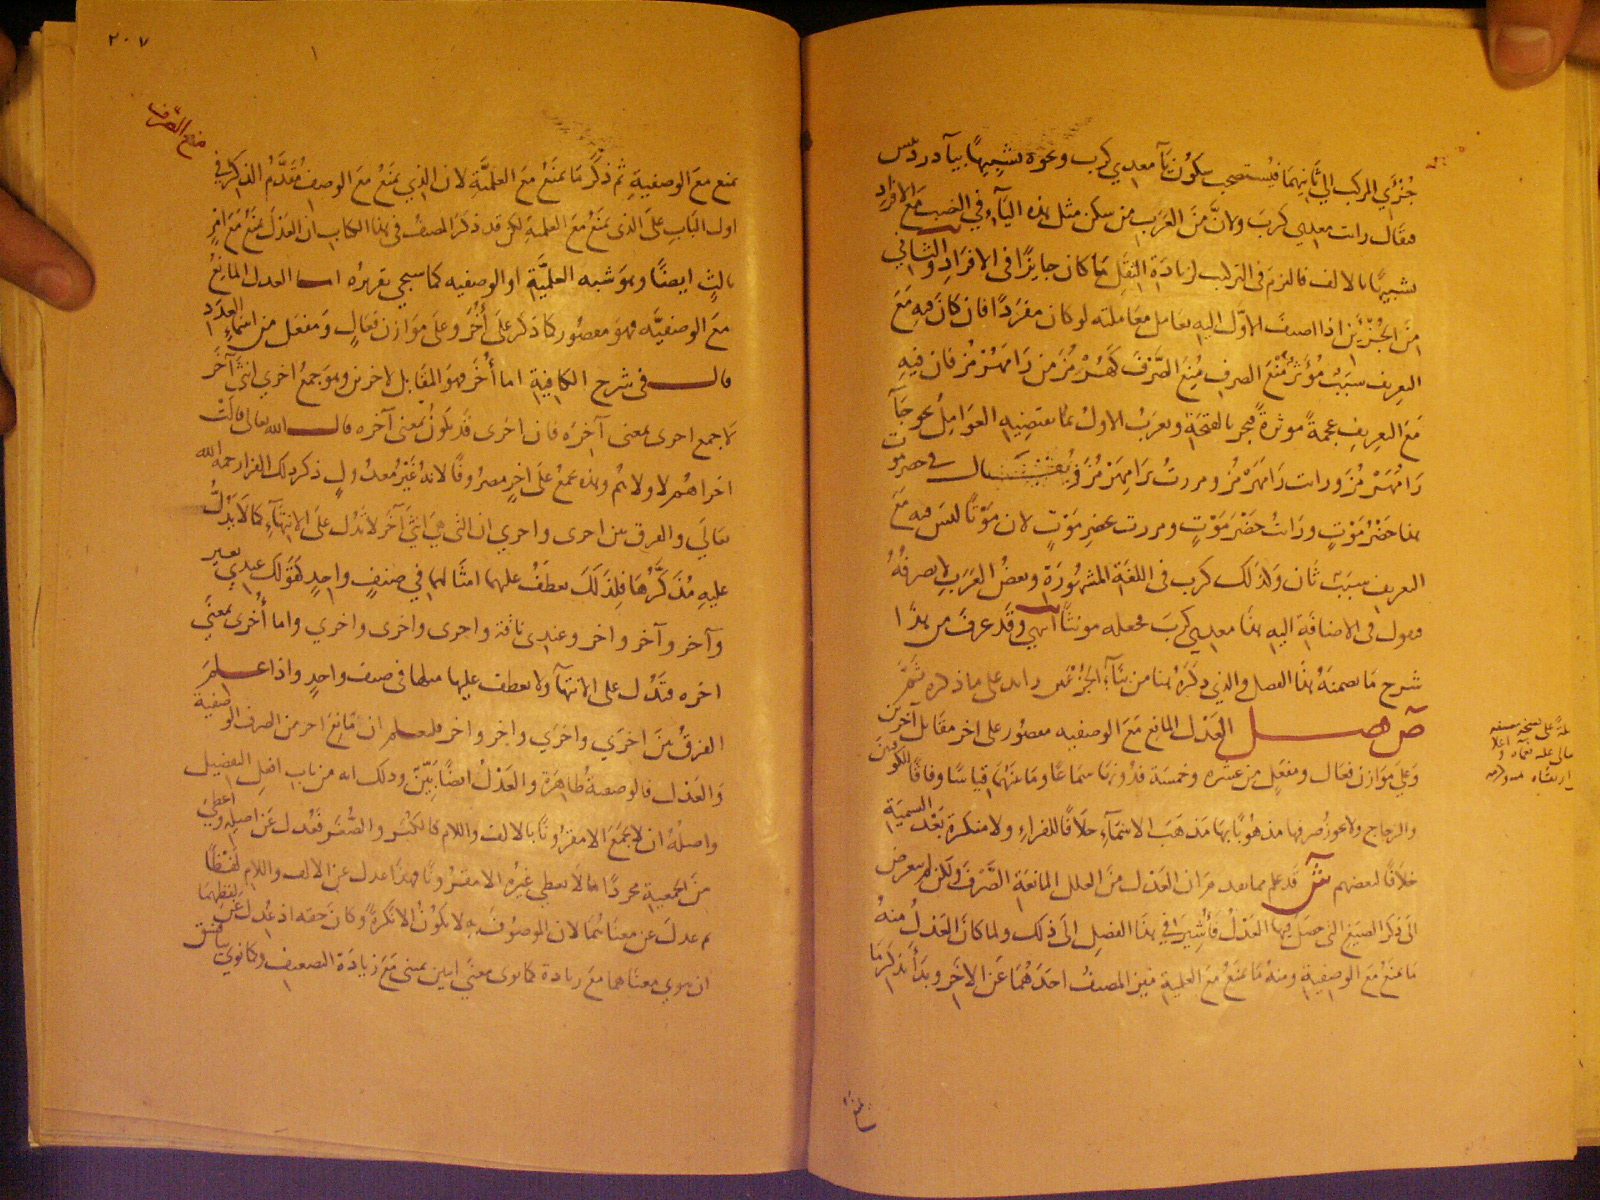 جزئي المركب الى ثانيهما فيستصحب سكون ياء معدي كرب ونحوه تشبيها بياء دردبيس
فيقال رايت معدي كرب ولان من العرب من سكن مثل هذه الياء في النصب مع الافراد
تشبيها بالالف فالتزم في التركيب لزيادة الثقل ما كان جايزا في الافراد والثاني
من الجزئين اذا اضيف الاول اليه يعامل معاملته لو كان مفردا فان كان فيه مع
التعريف سبب مؤثر منع الصرف كهرمز من رامهرمز فان فيه
مع التعريف عجمة موثرة فيجر بالفتحة ويعرب الاول بما تقتضيه العوامل نحو جاء
رامهرمز ورايت رامهرمز ومررت برامهرمز ويقال في حضرموت
هذا حضرموت ورايت حضرموت ومررت بحضرموت لان موتا ليس فيه مع
التعريف سبب ثان وكذلك كرب في اللغة المشهورة وبعض العرب لا يصرفه
فيقول في الاضافة اليه هذا معدي كرب فجعله مونثا انتهى وقد عرف من هذا
شرح ما تضمنه هذا الفصل والذي ذكره هنا من بناء الجزئين زايد على ما ذكره ثم
ص فصل العدل المانع مع الوصفيه مقصور على اخر مقابل آخرين
وعلى موازن فعال ومفعل من عشرة وخمسة فدونها سماعا وما بينهما قياسا وفاقا للكوفيين
والزجاج ولا يجوز صرفها مذهوبا بها مذهب الاسماء خلافا للفراء ولا منكرة بعد التسمية
خلافا لبعضهم ش قد علم مما تقدم ان العدل من العلل المانعة الصرف ولكن لم يتعرض
الى ذكر الصيغ التي حصل فيها العدل فاشير في هذا الفصل الى ذلك ولما كان العدل منه
ما يمنع مع الوصفية ومنه ما يمنع مع العلمية ميز المصنف احدهما عن الآخر وبدأ بذكر ما
٢٠٧
منع الصرف
يمنع مع الوصفية ثم ذكر ما يمنع مع العلمية لان الذي يمنع مع الوصف مقدم الذكر في
اول الباب على الذي يمنع مع العلمية لكن قد ذكر المصنف في هذا الكتاب ان العدل يمنع مع امر
ثالث ايضا وهو شبه العلمية او الوصفيه كما سيجي تقريره اما العدل المانع
مع الوصفيه فهو مقصور كما ذكر على أخر وعلى موازن فعال ومفعل من اسماء العدد
قال في شرح الكافية اما أخر فهو المقابل لآخرين وهو جمع اخرى انثى آخر
لا جمع اخرى بمعنى آخرة فان اخرى قد تكون بمعنى آخره قال الله تعالى قالت
اخراهم لاولاهم وهذه تجمع على اخر مصروفا لانه غير معدول ذكر ذلك الفراء رحمه الله
تعالى والفرق بين اخرى واخرى ان التي هي انثى آخر لا تدل على الانتهاء كما لا يدل
عليه مذكرها فلذلك يعطف عليهما امثالهما في صنف واحد كقولك عندي بعير
وآخر وآخر واخر وعندي ناقة واخرى واخرى واخرى واما أخرى بمعنى
اخره فتدل على الانتهاء ولا يعطف عليها مثلها في صنف واحد واذا علم
الفرق بين اخرى واخرى واخر واخر فليعلم ان مانع اخر من الصرف الوصفية
والعدل فالوصفية ظاهرة والعدل ايضا بين وذلك انه من باب افعل التفضيل
واصله ان لا يجمع الا مقرونا بالالف واللام كالكبر والصغر فعدل عن اصله واعطي
من الجمعية مجردا ما لا يعطى غيره الا مقرونا فهذا عدل عن الالف واللام لفظا
ثم عدل عن معناهما لان الموصوف به لا يكون الا نكرة وكان حقه اذ عدل عن لفظهما
ان ينوي معناهما مع زيادة كما نوى معنى اثنين بمثنى مع زيادة التضعيف وكما نوى